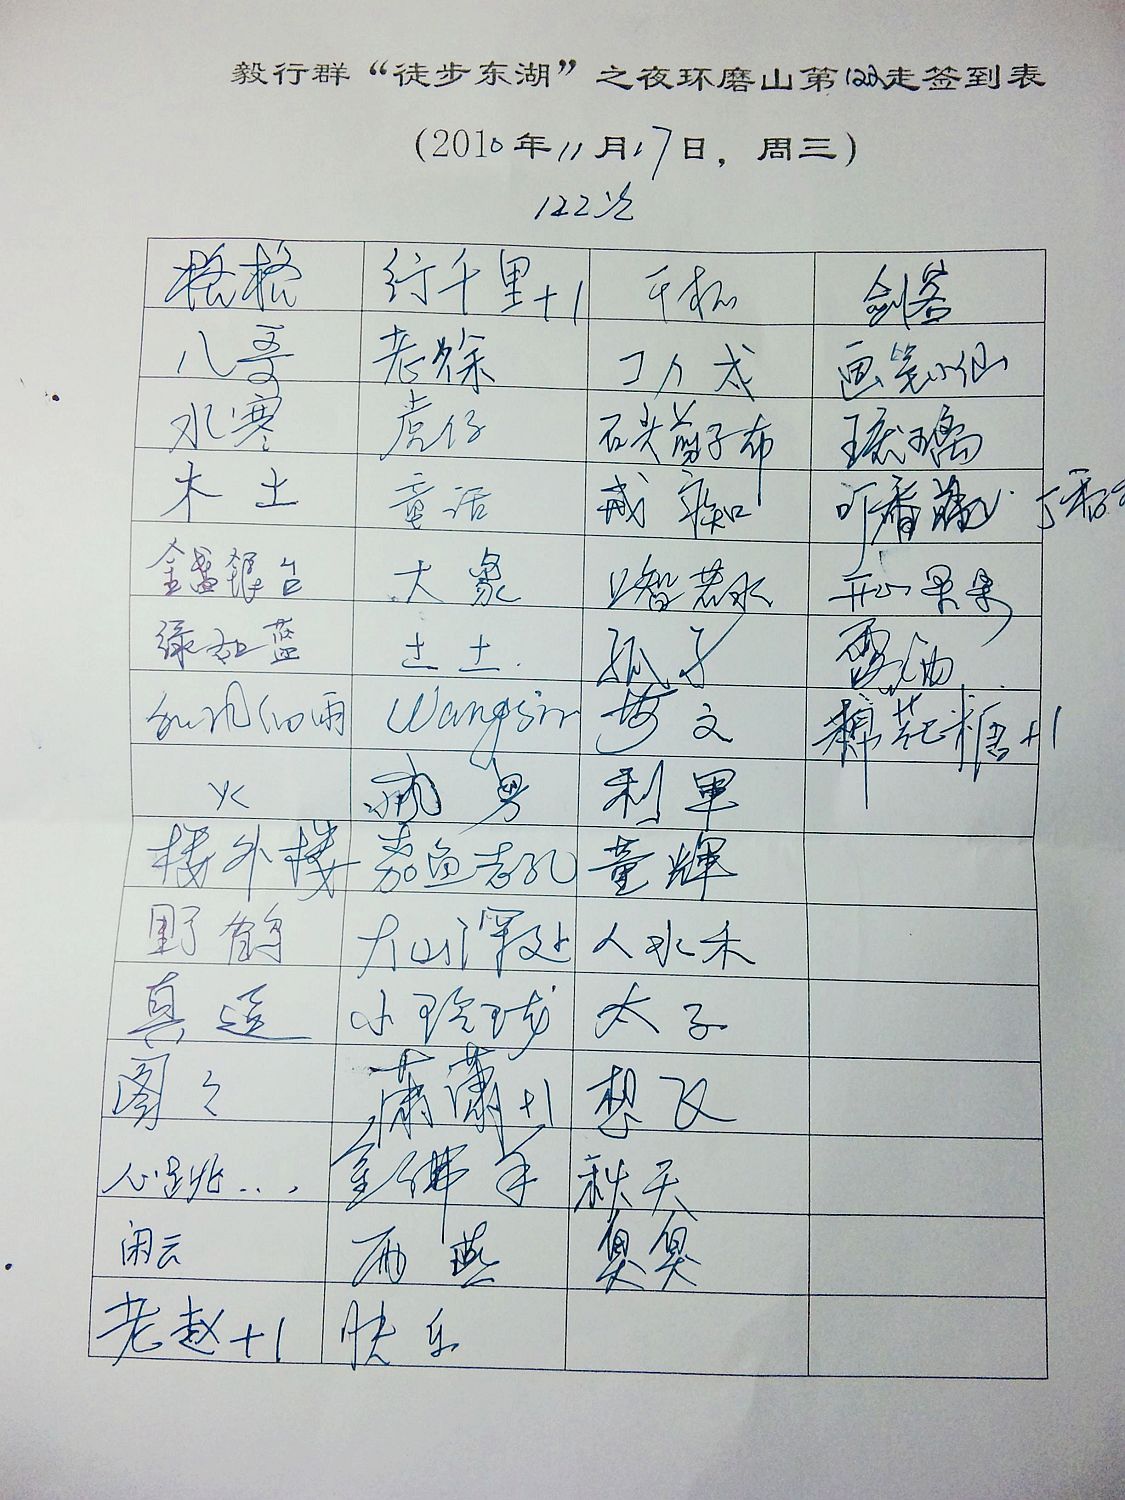 毅行群“徒步东湖”之夜环磨山第122走签到表
(2010年11月17日，周三)
122次
格格 行千里+1 剑客
八哥 老徐 画笔小仙
水寒 虎仔 石头剪子布 琉璃
木土 童话 戒痴
金盏银台 大象 上智若水 开心果果
绿如蓝 土土. 孤子
和风细雨 Wangsir 梦文 棉花糖+1
火 利军
楼外楼 嘉鱼老孔 董辉
野鹤 大山深处 人水禾
真遥 小玲珑 太子
图々 潇潇+1 想飞
心跳... 金佛手 秋天
闲云 雨燕 臭臭
老赵+1 快乐